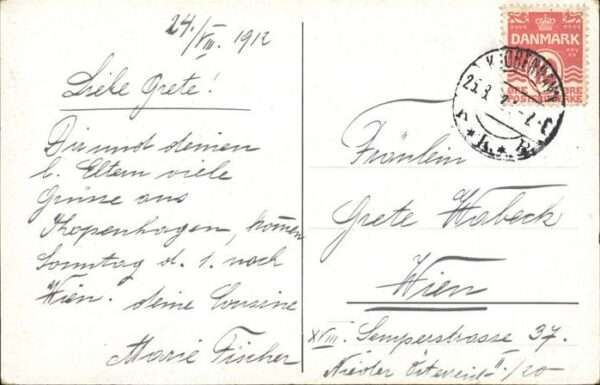 24./VIII. 1912
Liebe Grete!
Dir und deinen
l. Eltern viele
Grüsse aus
Kopenhagen, komen
Sonntag d. 1. nach
Wien. deine Cousine
Marie Fischer
DANMARK
KJØBENHAVN
25.8.12
POSTFRIM
Fräulein
Grete Habeck
Wien
XVIII. Semperstrasse 37.
II/20